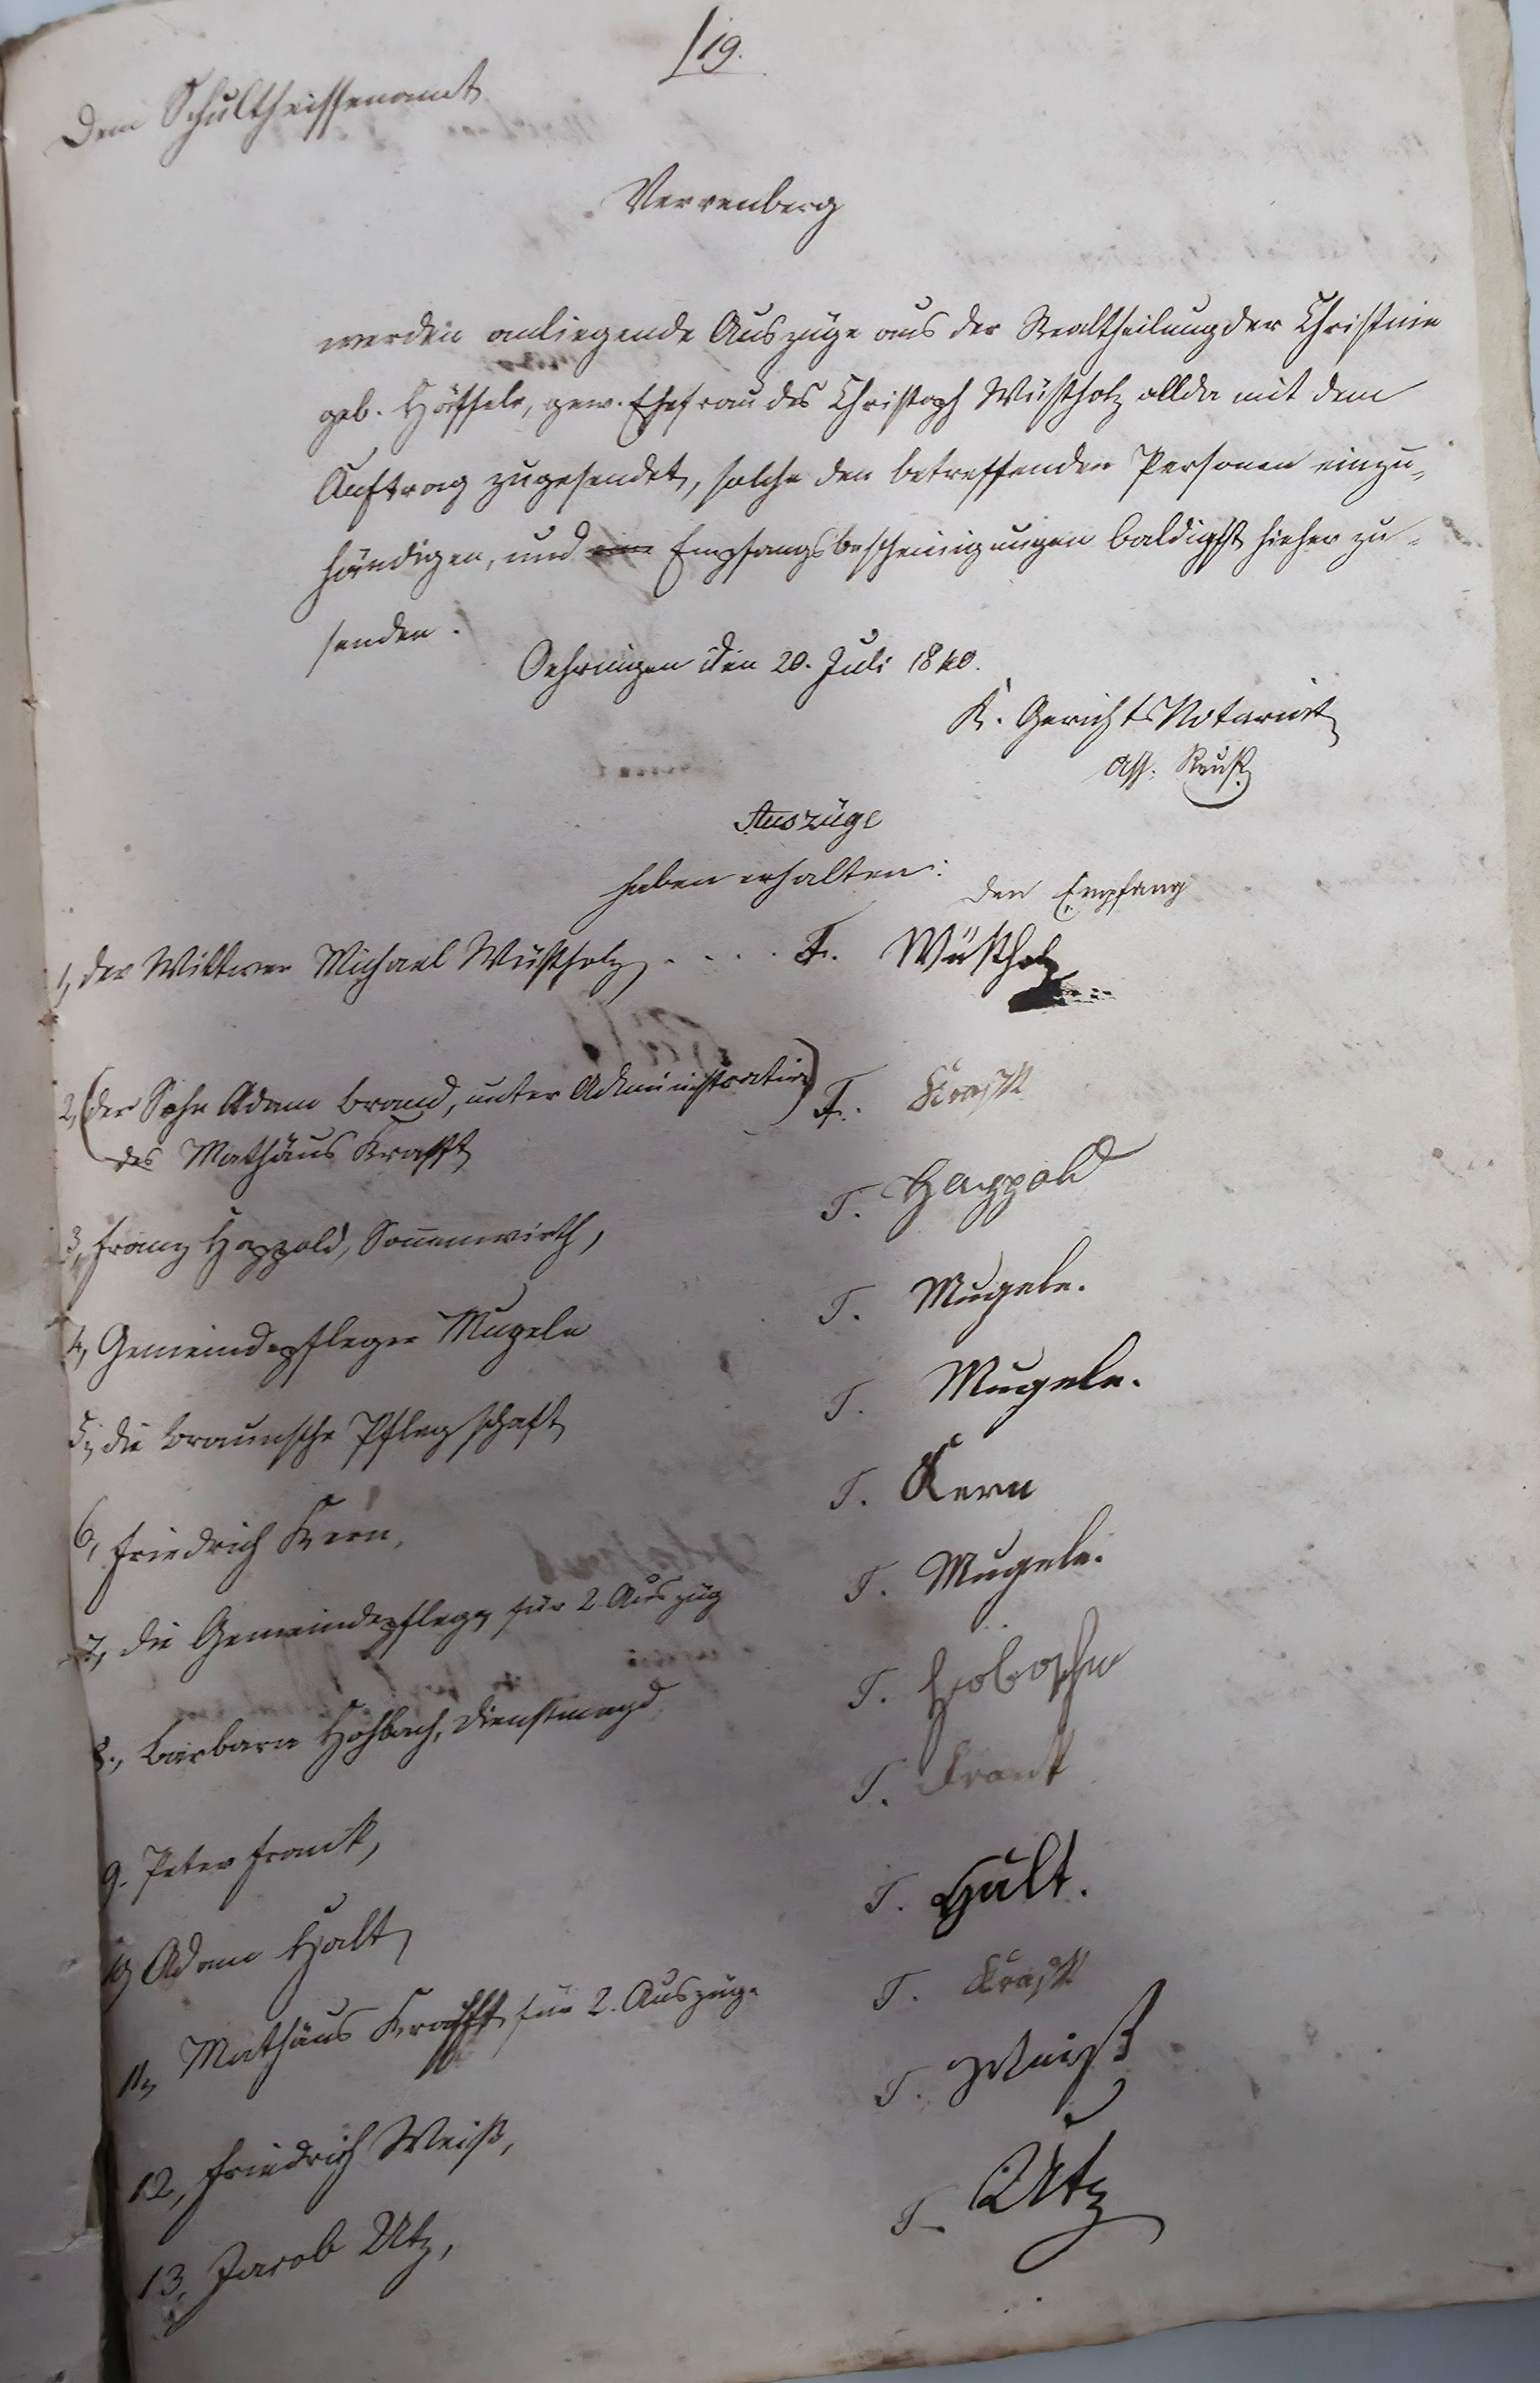 19.
Dem Schultheissenamt
Verrenberg
werden anliegende Auszüge aus der Realtheilung der Christine
geb. Häffele, gew. Ehefrau des Christoph Wüstholz allda mit dem
Auftrag zugesendet, solche den betreffenden Personen einzu-
händigen, und eine Empfangsbescheinigungen baldigst hieher zu-
senden.
Oehringen den 20. Juli 1840.
K. GerichtsNotariat
Ass. Reuß
Auszüge
haben erhalten:
den Empfang
1, der Wittwer Michael Wüstholz, . . . . T. Wüstholz
2, (der Sohn Adam Braun, unter Administration) T. Krafft
des Mathäus Krafft
3, Franz Happold, Sonnenwirth, T. Happold
4, Gemeindepfleger Mugele T. Mugele.
5, die Braunsche Pflegschaft T. Mugele.
6, Friedrich Kern, T. Kern
7, die Gemeindepflege für 2 Auszüg T. Mugele.
8., Barbara Hohbach, Dienstmagd T.
9. Peter Frank, T. Frank
10, Adam Halt, T. Halt.
11, Mathäus Krafft für 2. Auszüge T. Krafft
12, Friedrich Weiß, T. Weiß
13, Jacob Utz, T. Utz